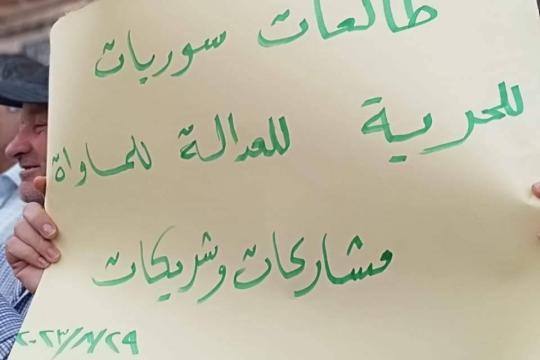 طالعات سوريات
للحرية للعدالة للمساواة
مشاركات وشريكات
٢٠٢٣/٨/٢٩